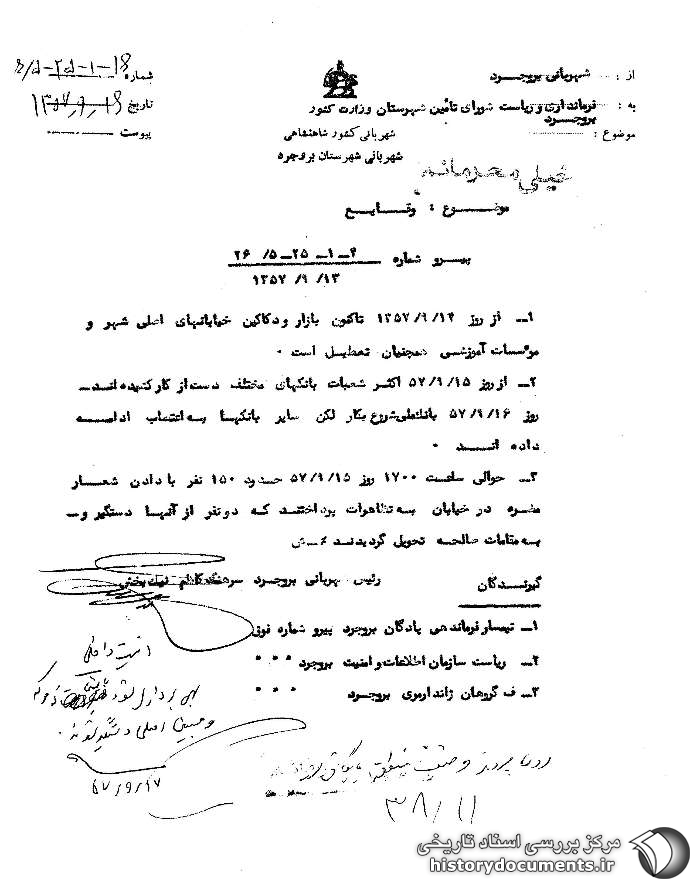 از : شهربانی بروجرد
به : فرمانداری و ریاست شورای تأمین شهرستان بروجرد
موضوع :
وزارت کشور
شهربانی کشور شاهنشاهی
شهربانی شهرستان بروجرد
شماره
تاریخ ۱۳۵۷/۹/۱۶
پیوست
خیلی محرمانه
موضوع : وقایع
پیرو شماره ۴-۱-۲۵-۵/ ۲۶
۱۳۵۷/۹/۱۳
۱- از روز ۱۳۵۷/۹/۱۴ تاکنون بازار و دکاکین خیابانهای اصلی شهر و
مؤسسات آموزشی همچنان تعطیل است .
۲- از روز ۵۷/۹/۱۵ اکثر شعبات بانکهای مختلف دست از کار کشیده اند -
روز ۵۷/۹/۱۶ بانک ملی شروع بکار لکن سایر بانکها به اعتصاب ادامه
داده اند .
۳- حوالی ساعت ۱۷۰۰ روز ۵۷/۹/۱۵ حدود ۱۵۰ نفر با دادن شعار
مضره در خیابان به تظاهرات پرداختند که دو نفر از آنها دستگیر و -
به مقامات صالحه تحویل گردیدند
رئیس شهربانی بروجرد سرهنگ کاظم نیک بخش
گیرندگان
۱- تیمسار فرماندهی پادگان بروجرد پیرو شماره فوق
۲- ریاست سازمان اطلاعات و امنیت بروجرد " " "
۳- ف گروهان ژاندارمری بروجرد " " "
امنیت داخلی
و مسببین اصلی دستگیر شوند .
۵۷/۹/۱۷
۳۸/۱۱
مرکز بررسی اسناد تاریخی
historydocuments.ir